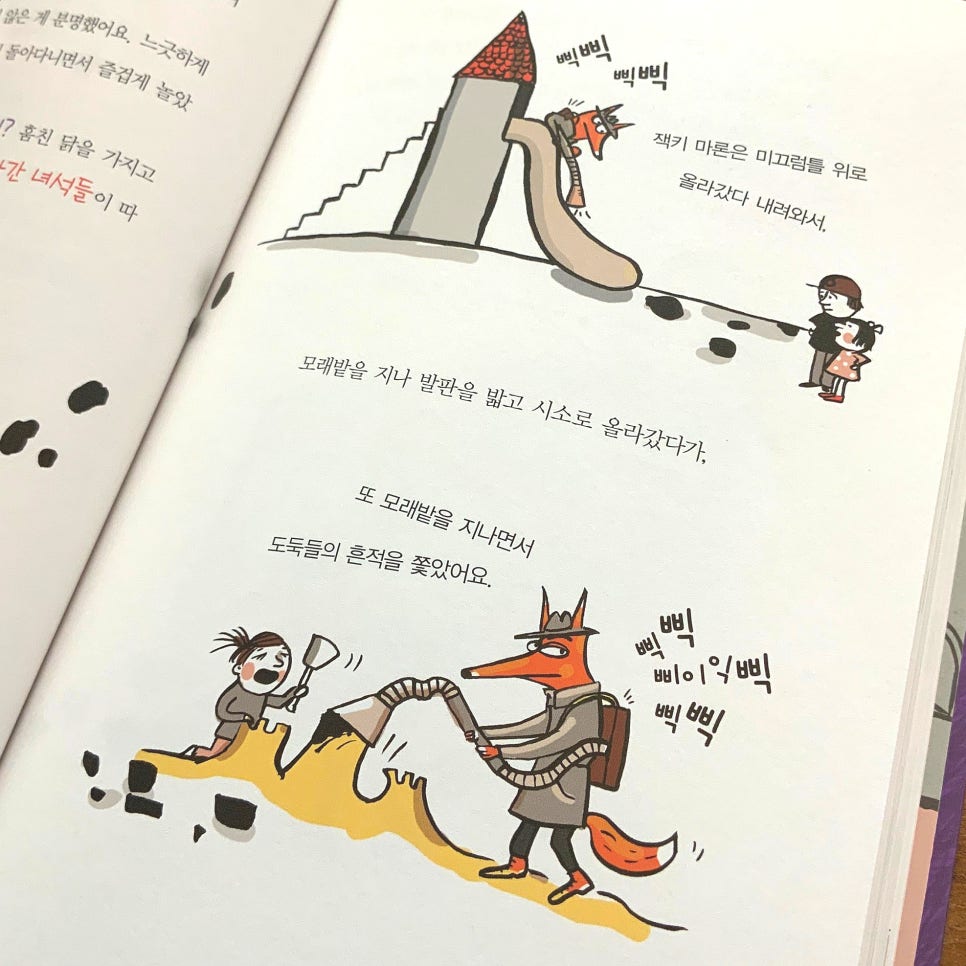 않은 게 분명했어요. 느긋하게
돌아다니면서 즐겁게 놀았
훔친 닭을 가지고
간 녀석들이 따
삑삑
삑삑
잭키 마론은 미끄럼틀 위로
올라갔다 내려와서,
모래밭을 지나 발판을 밟고 시소로 올라갔다가,
또 모래밭을 지나면서
도둑들의 흔적을 쫓았어요.
삑삑
삐이익삑
삑삑